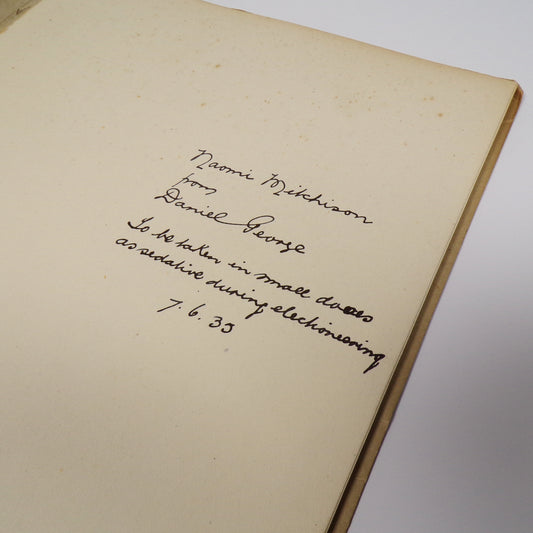 Naomi Mitchison
from
Daniel George
To be taken in small doses
as sedative during electioneering
7.6.35